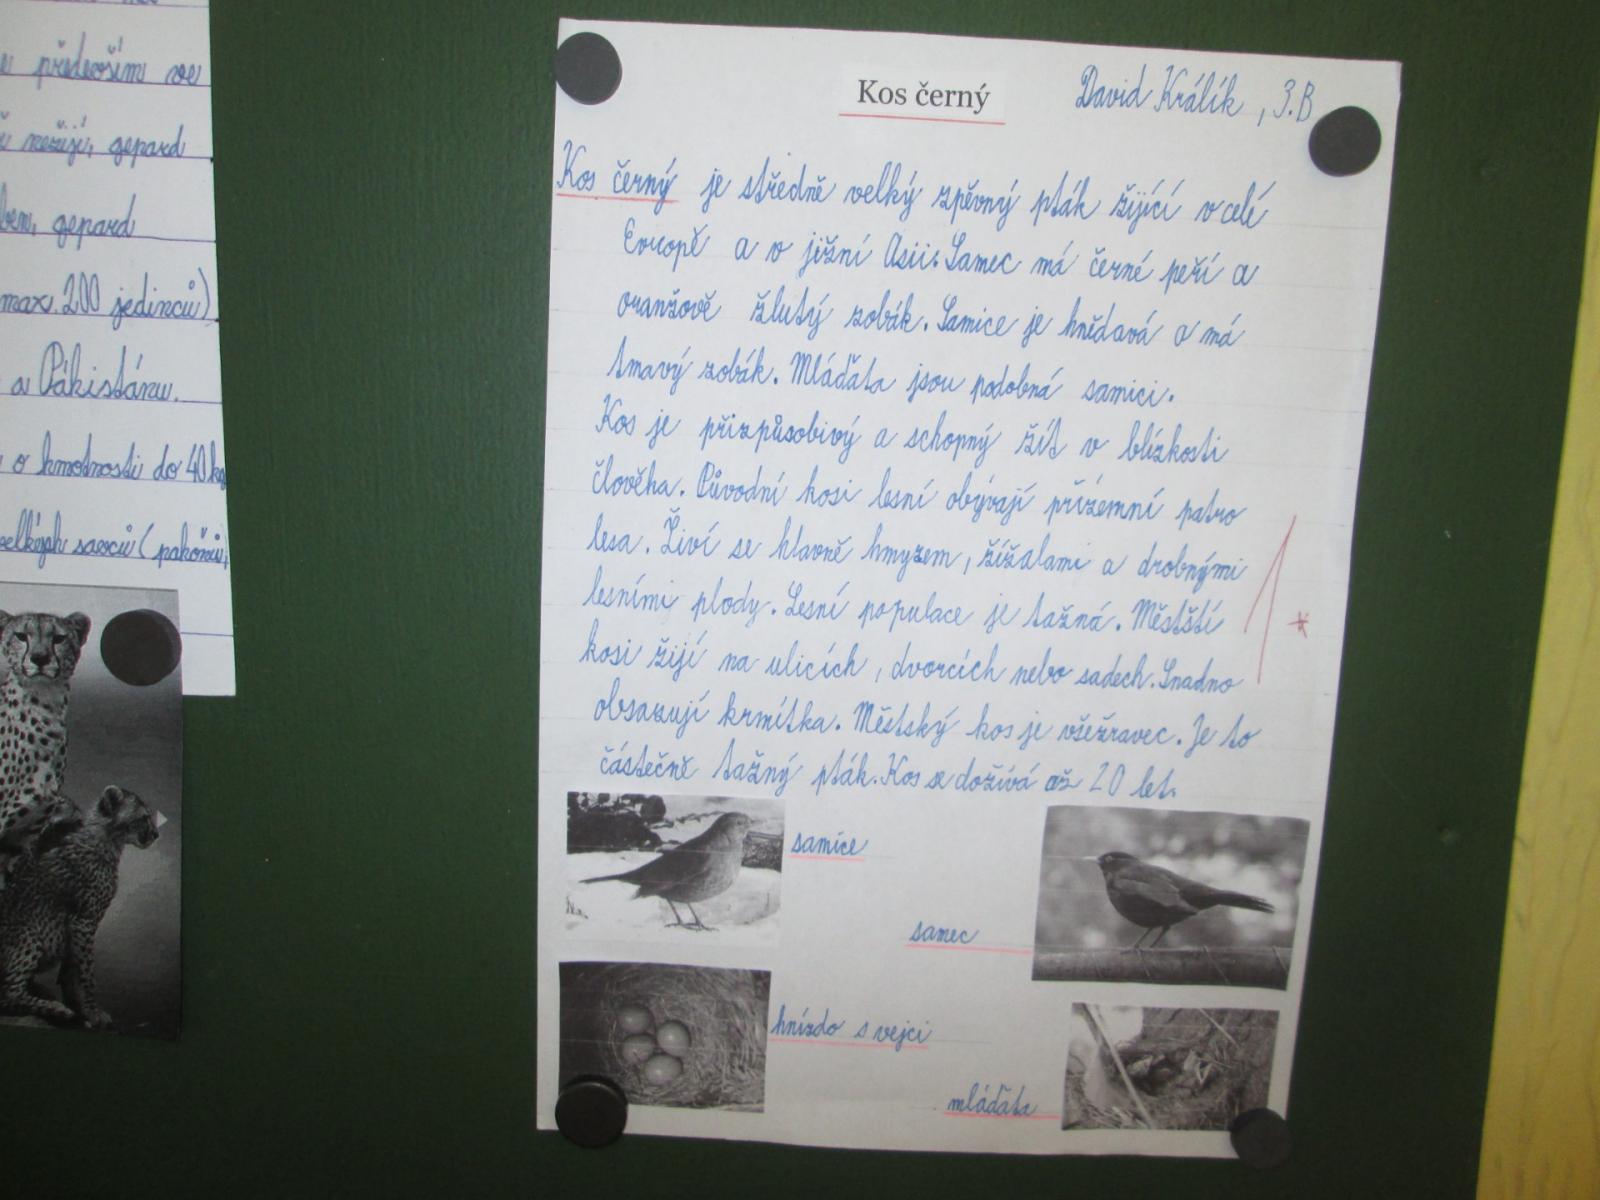 e především ve
nežijí, gepard
gepard
max. 200 jedinců)
a Pákistánu.
o hmotnosti do 40 kg
velkých savců (pakoňů,
Kos černý
David Králík, 3.B
Kos černý je středně velký zpěvný pták žijící v celé
Evropě a v jižní Asii. Samec má černé peří a
oranžově žlutý zobák. Samice je hnědavá a má
tmavý zobák. Mláďata jsou podobná samici.
Kos je přizpůsobivý a schopný žít v blízkosti
člověka. Původní kosi lesní obývají přízemní patro
lesa. Živí se hlavně hmyzem, žížalami a drobnými
lesními plody. Lesní populace je tažná. Městští
kosi žijí na ulicích, dvorcích nebo sadech. Snadno
obsazují krmítka. Městský kos je všežravec. Je to
částečně tažný pták. Kos se dožívá až 20 let.
1*
samice
samec
hnízdo s vejci
mláďata